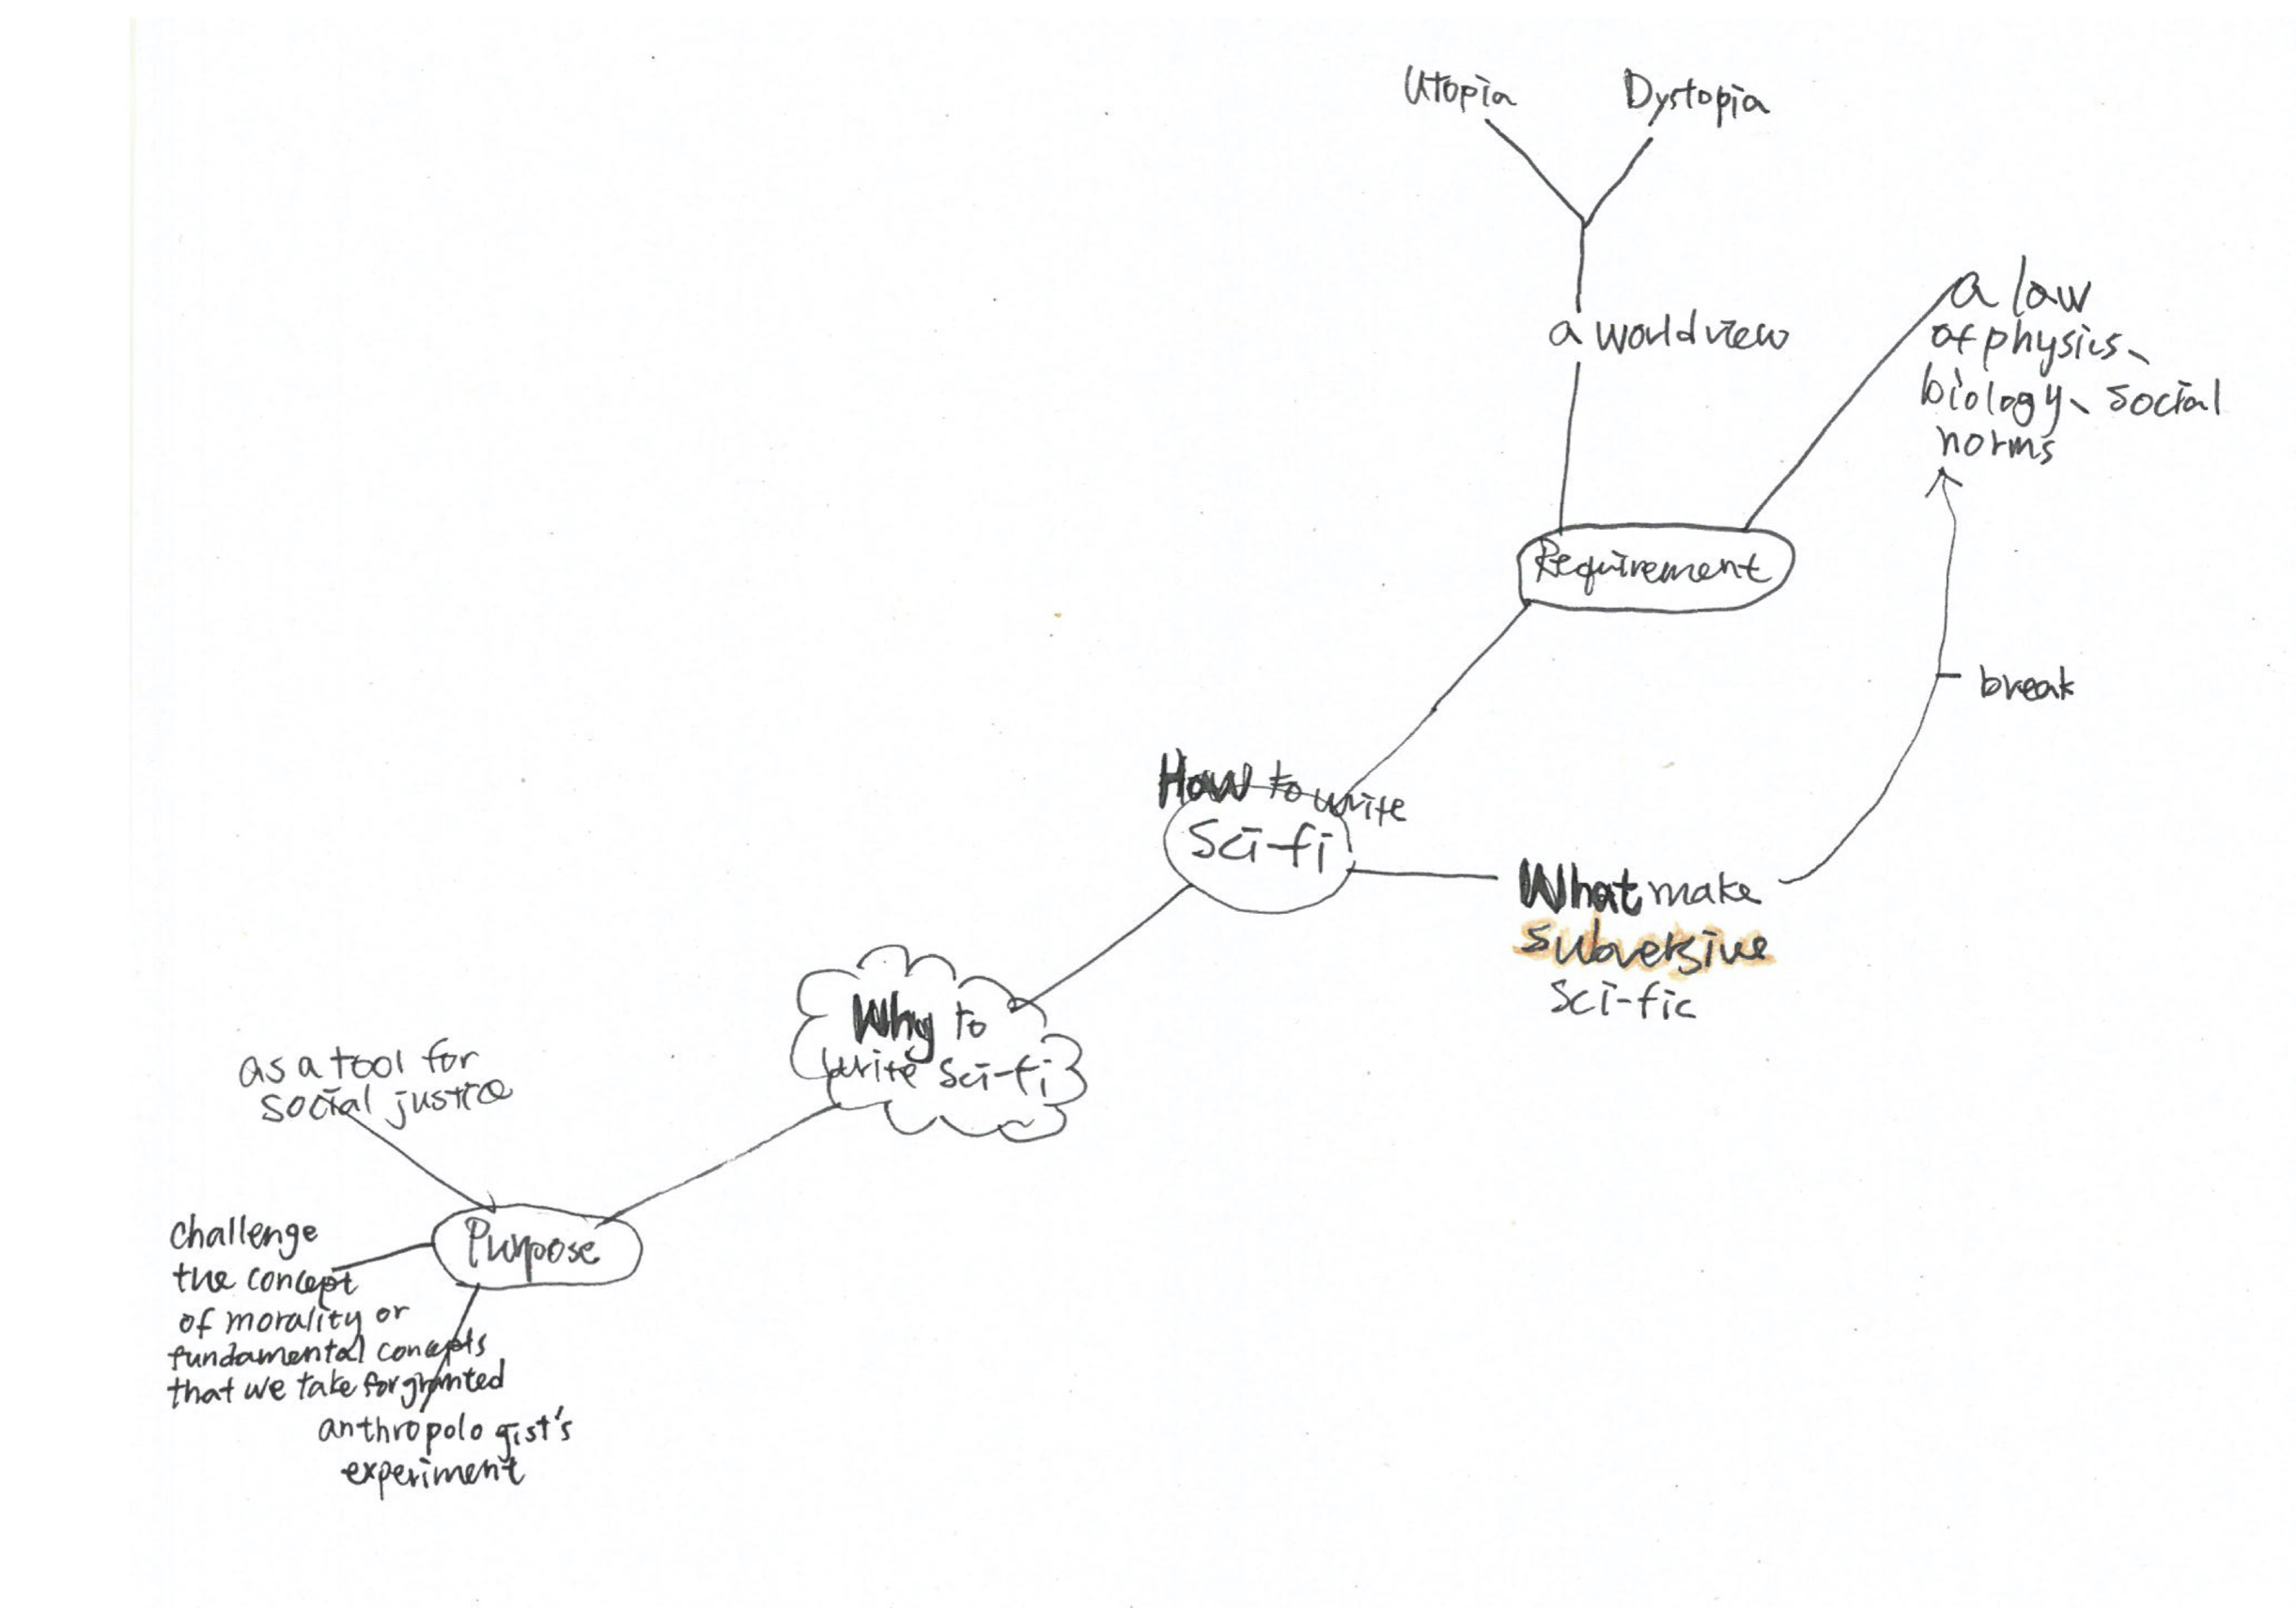 Utopia
Dystopia
a worldview
a law
of physics、
biology、social
norms
Requirement
break
How to write
Sci-fi
What make
subversive
Sci-fic
Why to
write Sci-fi
as a tool for
social justice
Purpose
challenge
the concept
of morality or
fundamental concepts
that we take for granted
anthropologist's
experiment